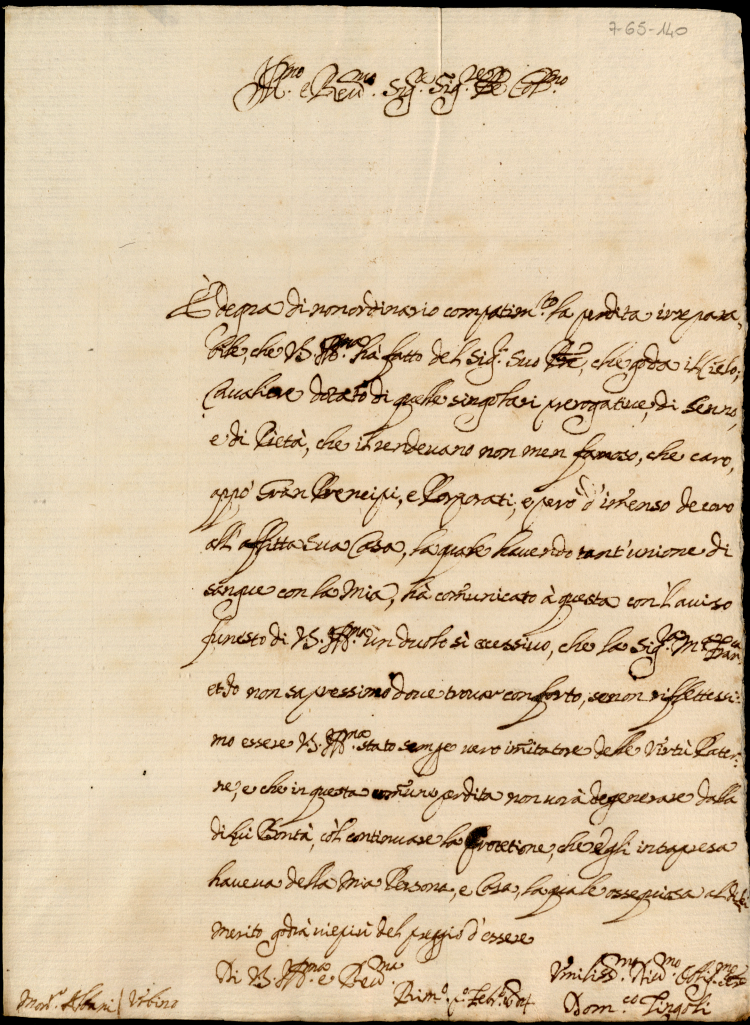 7-65-140
Ill.mo e Rev.mo Sig.r Sig.r P̃rõn Col.mo
È degna di nonordinario compatim.to la perdita irrepara-
bile, che V.S. Ill.ma hà fatto del Sig.r Suo P̃re, che goda il Cielo;
Cavaliere dotato di quelle singolari prerogative, di senno,
e di Pietà, che il rendevano non men famoso, che caro,
appò Gran Prencipi, e Porporati, e però d'im̃enso decoro
all'afflitta Sua Casa, la quale havendo tant'unione di
sangue con la Mia, hà com̃unicato à questa con l'aviso
funesto di V.S. Ill.ma un duolo sì eccessivo, che la Sig.ra M.a Fran.ca
et Io non sapressimo dove trovar conforto, se non riflettessi-
mo essere V.S. Ill.ma stato sempre vero imitatore delle Virtù Pater-
ne, e che in questa com̃une perdita non vorà degenerare dalla
di lui Bontà, cõl continuare la Protetione, ch'egli intrapresa
haveva della Mia Persona, e Casa, la quale ossequiosa al di lei
merito godrà viepiù del preggio d'essere
Di V.S. Ill.ma e Rev.ma
Umiliss.mo Div.mo Oblig.mo
Rim.o p.o Feb.ro
Dom.co Zingoli
Mons.r Albani / Urbino